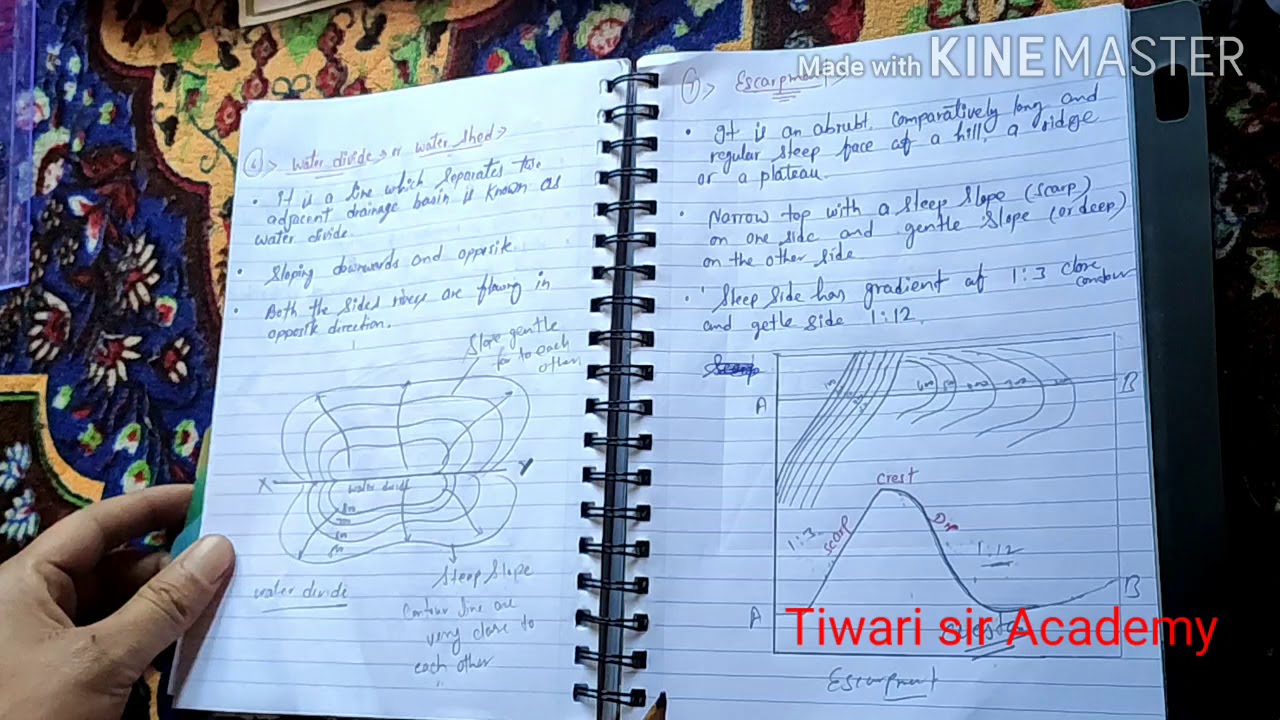 Made with KINEMASTER
6 > water divide > or water shed >
• It is a line which separates two
adjacent drainage basin is known as
water divide.
• Sloping downwards and opposite.
• Both the sides rivers are flowing in
opposite direction.
slope gentle
far to each
other
X
Y
water divide
water divide
steep slope
contour line are
very close to
each other
7 >
• It is an abrubt, comparatively long and
regular steep face of a hill, a ridge
or a plateau.
• Narrow top with a steep slope (scarp)
on one side and gentle slope (or deep)
on the other side
• Steep side has gradient of 1:3 close
contour
and getle side 1:12.
A
B
crest
1:3
scarp
1:12
A
B
Tiwari sir Academy
Escarpment